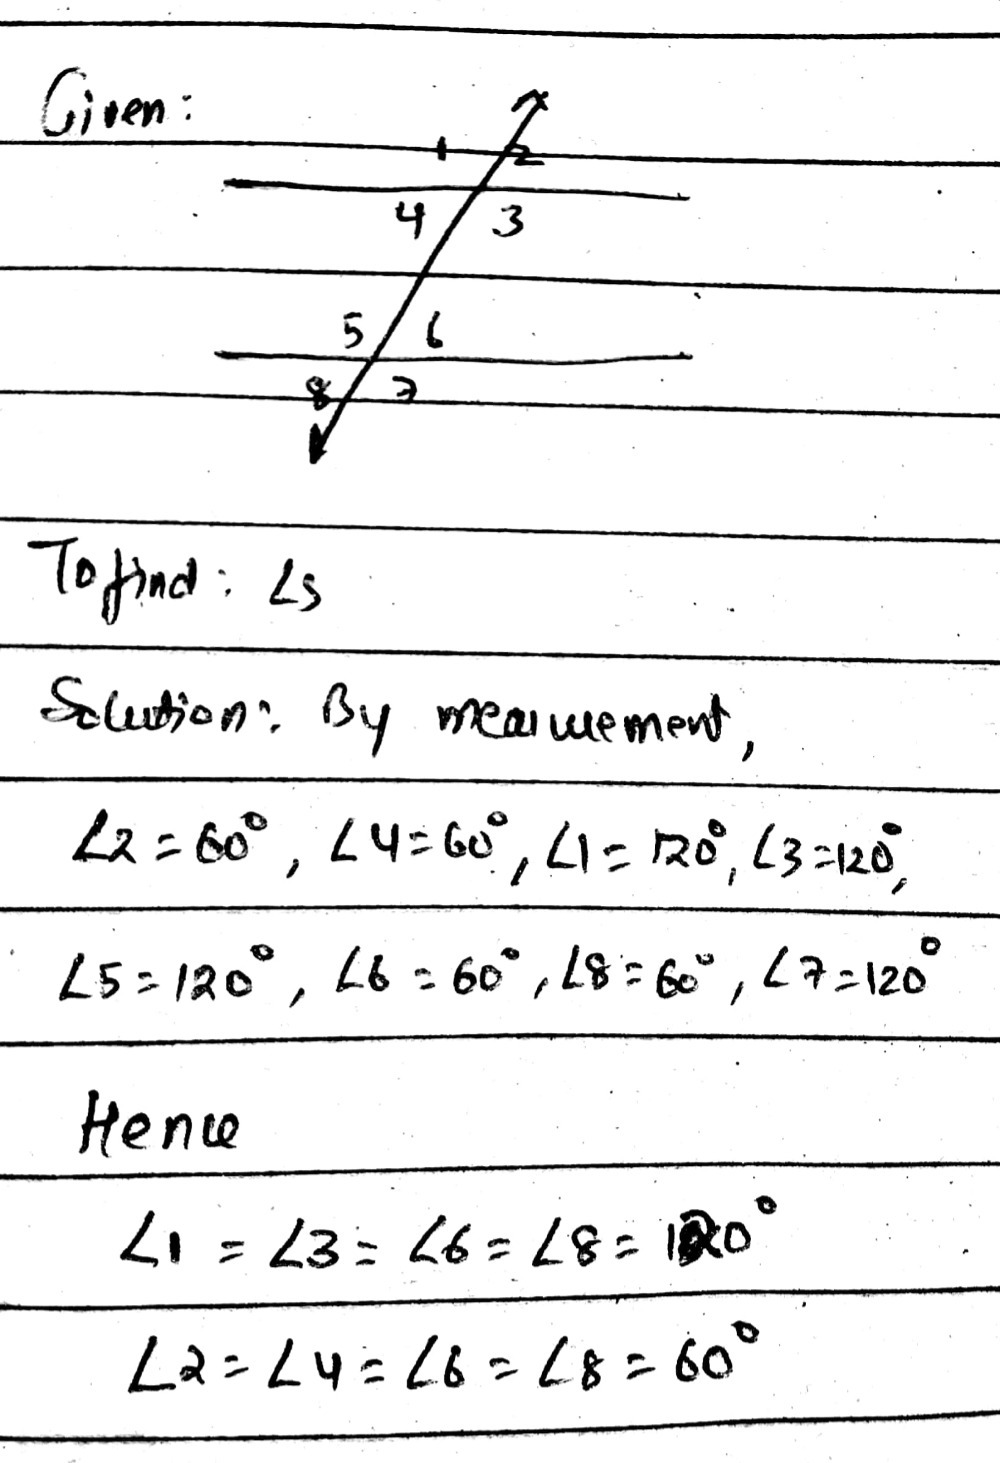 Given:
1 2
4 3
5 6
8 7
To find: ∠s
Solution: By measurement,
∠2 = 60°, ∠4 = 60°, ∠1 = 120°, ∠3 = 120°,
∠5 = 120°, ∠6 = 60°, ∠8 = 60°, ∠7 = 120°
Hence
∠1 = ∠3 = ∠6 = ∠8 = 120°
∠2 = ∠4 = ∠6 = ∠8 = 60°